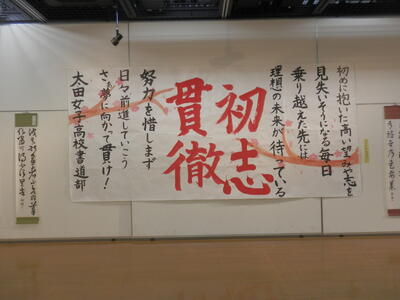 初めに抱いた高い望みや志を
見失いそうになる毎日
乗り越えた先は
理想の未来が待っている
初志
貫徹
努力を惜しまず
日々前進していこう
さぁ夢に向かって貫け!
太田女子高校書道部